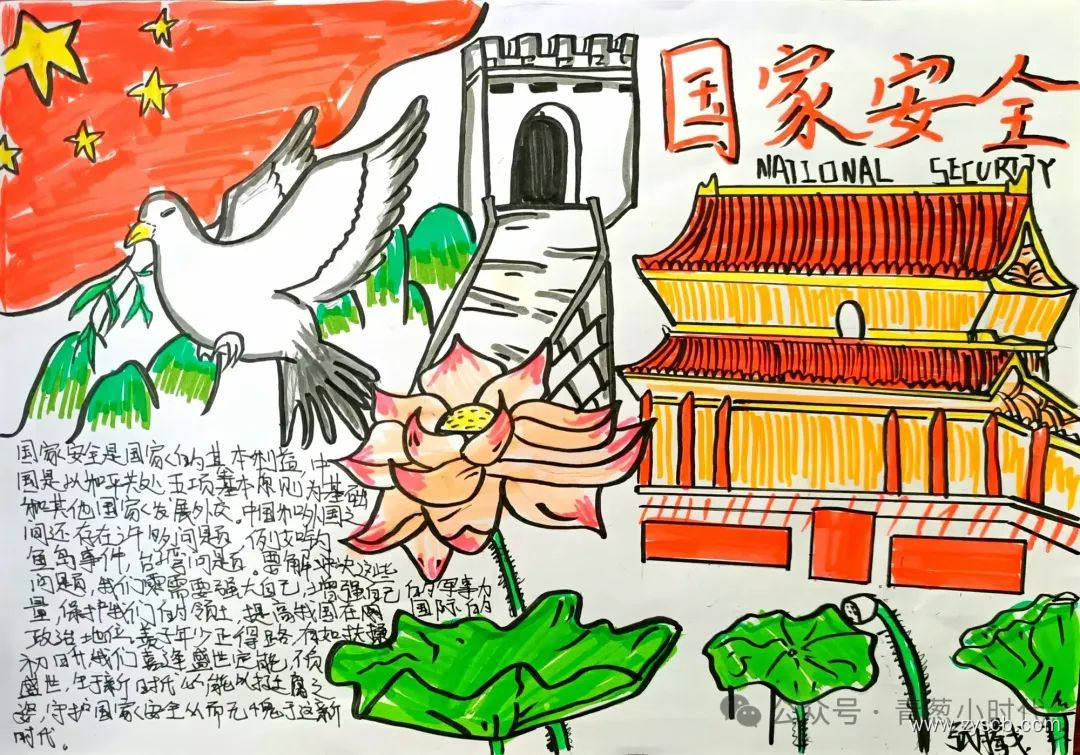 国家安全
NATIONAL SECURITY
国家安全是国家的基本利益,中
国是以和平共处五项基本原则为基础
和其他国家发展外交。中国和外国之
间还存在许多问题,例如钓
鱼岛事件,台湾问题。要解决这些
问题,我们需要强大自己,增强自己的军事力
量,保护我们的领土,提高我国在国际的
政治地位。吾辈年少正得路,有如扶桑
初日升,我们喜逢盛世定能不负
盛世,生于新时代必能以
姿,守护国家安全从而无愧于这新
时代。
公众号·青葱小时代
www.zyscb.com